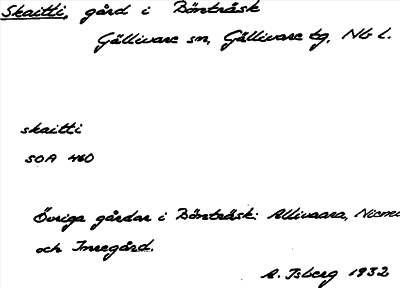 Skaitti, gård i Böntträsk
Gällivare sn, Gällivare tg, Nb L.
skaitti
SOA 460
Övriga gårdar i Böntträsk: Allivaara,
och Innegård.
A. Isberg 1932